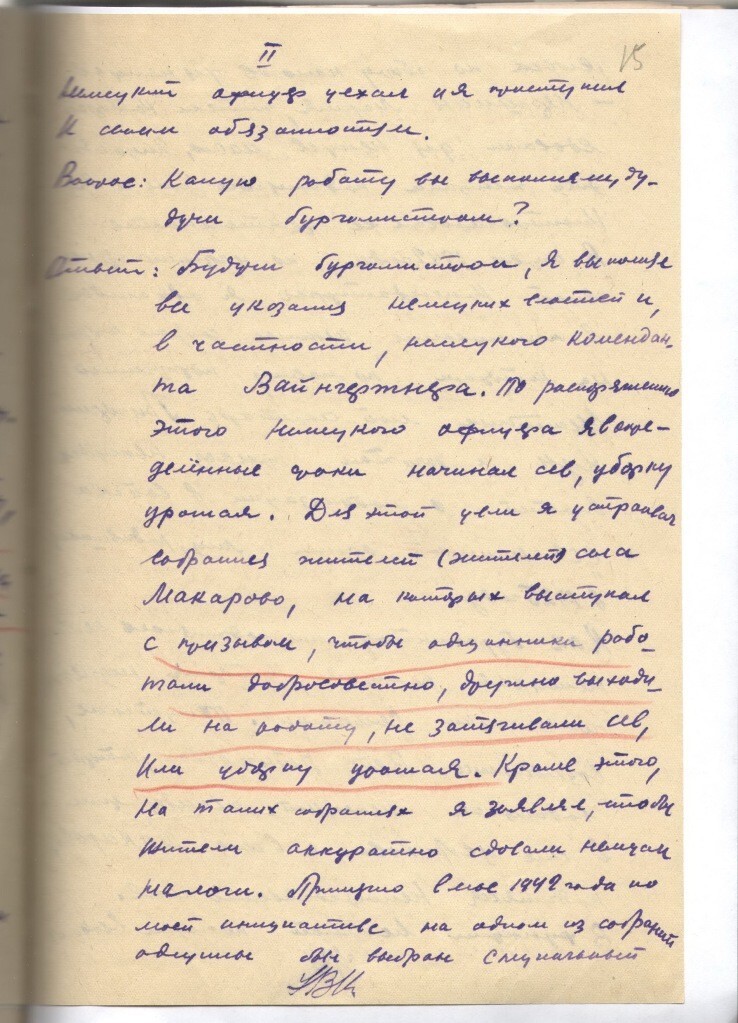 II
15
Немецкий офицер уехал и я приступил
к своим обязанностям.
Вопрос: Какую работу вы выполняли, бу-
дучи бургомистром?
Ответ: Будучи бургомистром, я выполнял
все указания немецких властей и,
в частности, немецкого комендан-
та. По распоряжению
этого немецкого офицера я в опре-
делённые сроки начинал сев, уборку
урожая. Для этой цели я устраивал
собрания жителей (жителей) села
Макарово, на которых выступал
с призывом, чтобы общинники рабо-
тали добросовестно, дружно выходи-
ли на работу, не затягивали сев,
или уборку урожая. Кроме этого,
на таких собраниях я заявлял, чтобы
жители аккуратно сдавали немцам
налоги. Примерно в мае 1942 года по
моей инициативе на одном из собраний
общины был выбран специальный